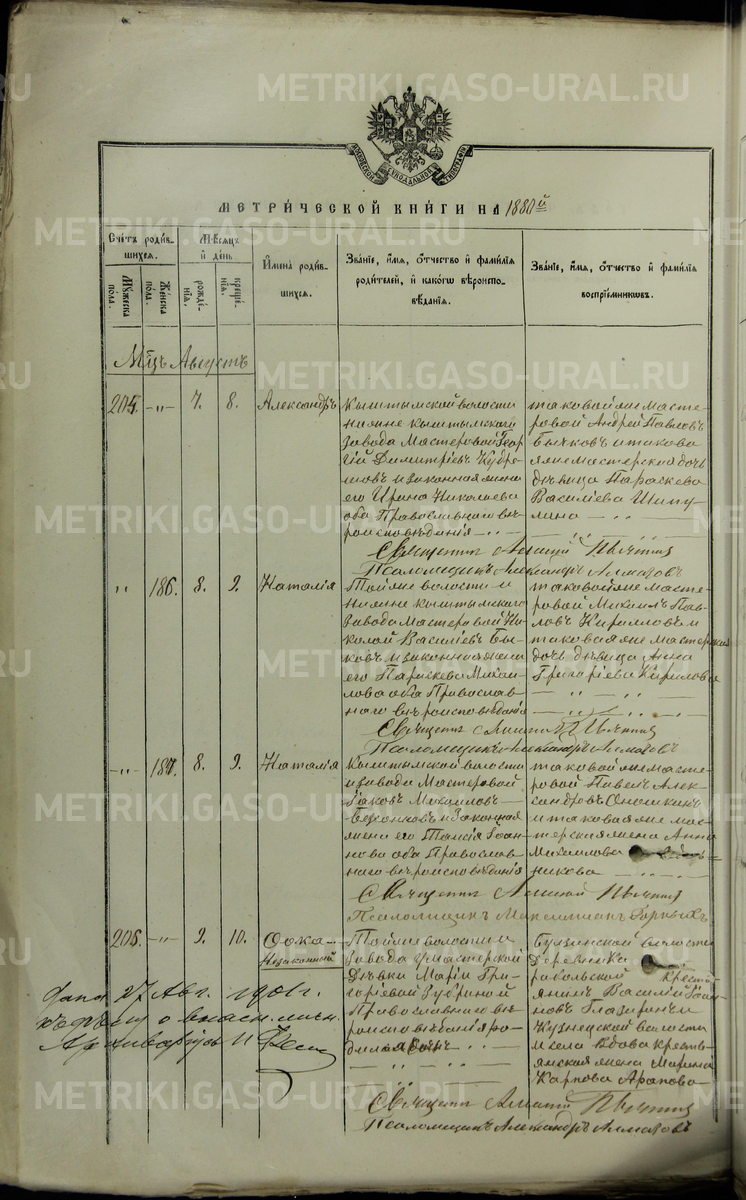 METRIKI.GASO-URAL.RU
МЕТРИ́ЧЕСКОЙ КНИ́ГИ НА 1880й
Счетъ роди́в-
шихся.
Му́жеска по́ла.
Же́нска по́ла.
Мѣсяцъ
и҆ де́нь
рожде-
нія.
креще-
нія.
И҆мена̀ роди́в-
шихся.
Зва́ніе, и҆́мя, ѻ҆́тчество и҆ фами́лія
роди́телей, и҆ како́гѡ вѣроиспо-
вѣ́данія.
Зва́ніе, и҆́мя, ѻ҆́тчество и҆ фами́лія
воспріе́мникѡвъ.
Мцъ Августъ
205. —„— 7. 8. Александръ
Кыштымской волости
Нижне Кыштымскаго
Завода Мастеровой Геор-
гій Димитріевъ Кудре-
и законная жена
его Ирина Николаева
оба Православнаго вѣ-
роисповѣданія
таковой же Масте-
ровой Андрей Павловъ
Бычковъ и такова
я же мастерская дочь
дѣвица Параскева
Васильева Шипу-
лина
Священникъ
Псаломщикъ Александръ Алмазовъ
„ 186. 8. 9. Наталія
Той же волости и
Нижне Кыштымскаго
Завода Мастеровой Ни-
колай Василіевъ Бы-
ковъ и законная жена
его Параскева Михаи-
лова оба Православ-
наго вѣроисповѣданія
таковой же масте-
ровой Михаилъ Пав-
ловъ Кирилловъ и
таковая же мастерская
дочь дѣвица Анна
Григоріева Кирилова
Священникъ
Псаломщикъ Александръ Алмазовъ
—„— 187. 8. 9. Наталія
Кыштымской волости
и завода Мастеровой
Іаковъ Михаиловъ
и законная
жена его Таисія Іоан-
нова оба Православ-
наго вѣроисповѣданія
таковой же масте-
ровой Павелъ Алек-
сандровъ
и таковая же мас-
терская жена Анна
Михаилова
никова
Священникъ
Псаломщикъ Горныхъ
206. —„— 9. 10. Ѳока
Незаконный
Той же волости и
Завода у мастерской
Дѣвки Маріи Гри-
горіевой Зубриной
Православнаго вѣ-
роисповѣданія ро-
дился
Булзинской волости
Деревни
Кресть-
янинъ Василій Іоан-
новъ Глазыринъ и
Кузнецкой волости
и села Вдова кресть-
янская жена Марина
Карпова Арапова
Священникъ
Псаломщикъ Александръ Алмазовъ
27 Авг. 1901 г.